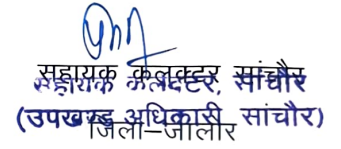 सहायक कलक्टर सांचौर
सहायक कलक्टर, सांचौर
(उपखण्ड अधिकारी सांचौर)
जिला–जालौर